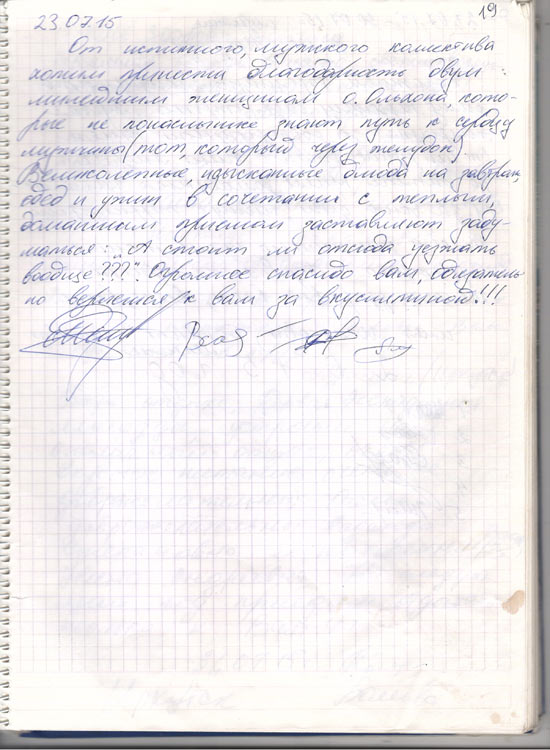 19
23.07.15
От истинного, мужского коллектива
хотим принести благодарность двум
милейшим женщинам о. Ольхона, кото-
рые не понаслышке знают путь к сердцу
мужчины (тот, который через желудок).
Великолепные, изысканные блюда на завтрак,
обед и ужин в сочетании с теплым,
домашним приемом заставляют заду-
маться: "А стоит ли отсюда уезжать
вообще???". Огромное спасибо вам, обязатель-
но вернемся к вам за вкуснятиной!!!